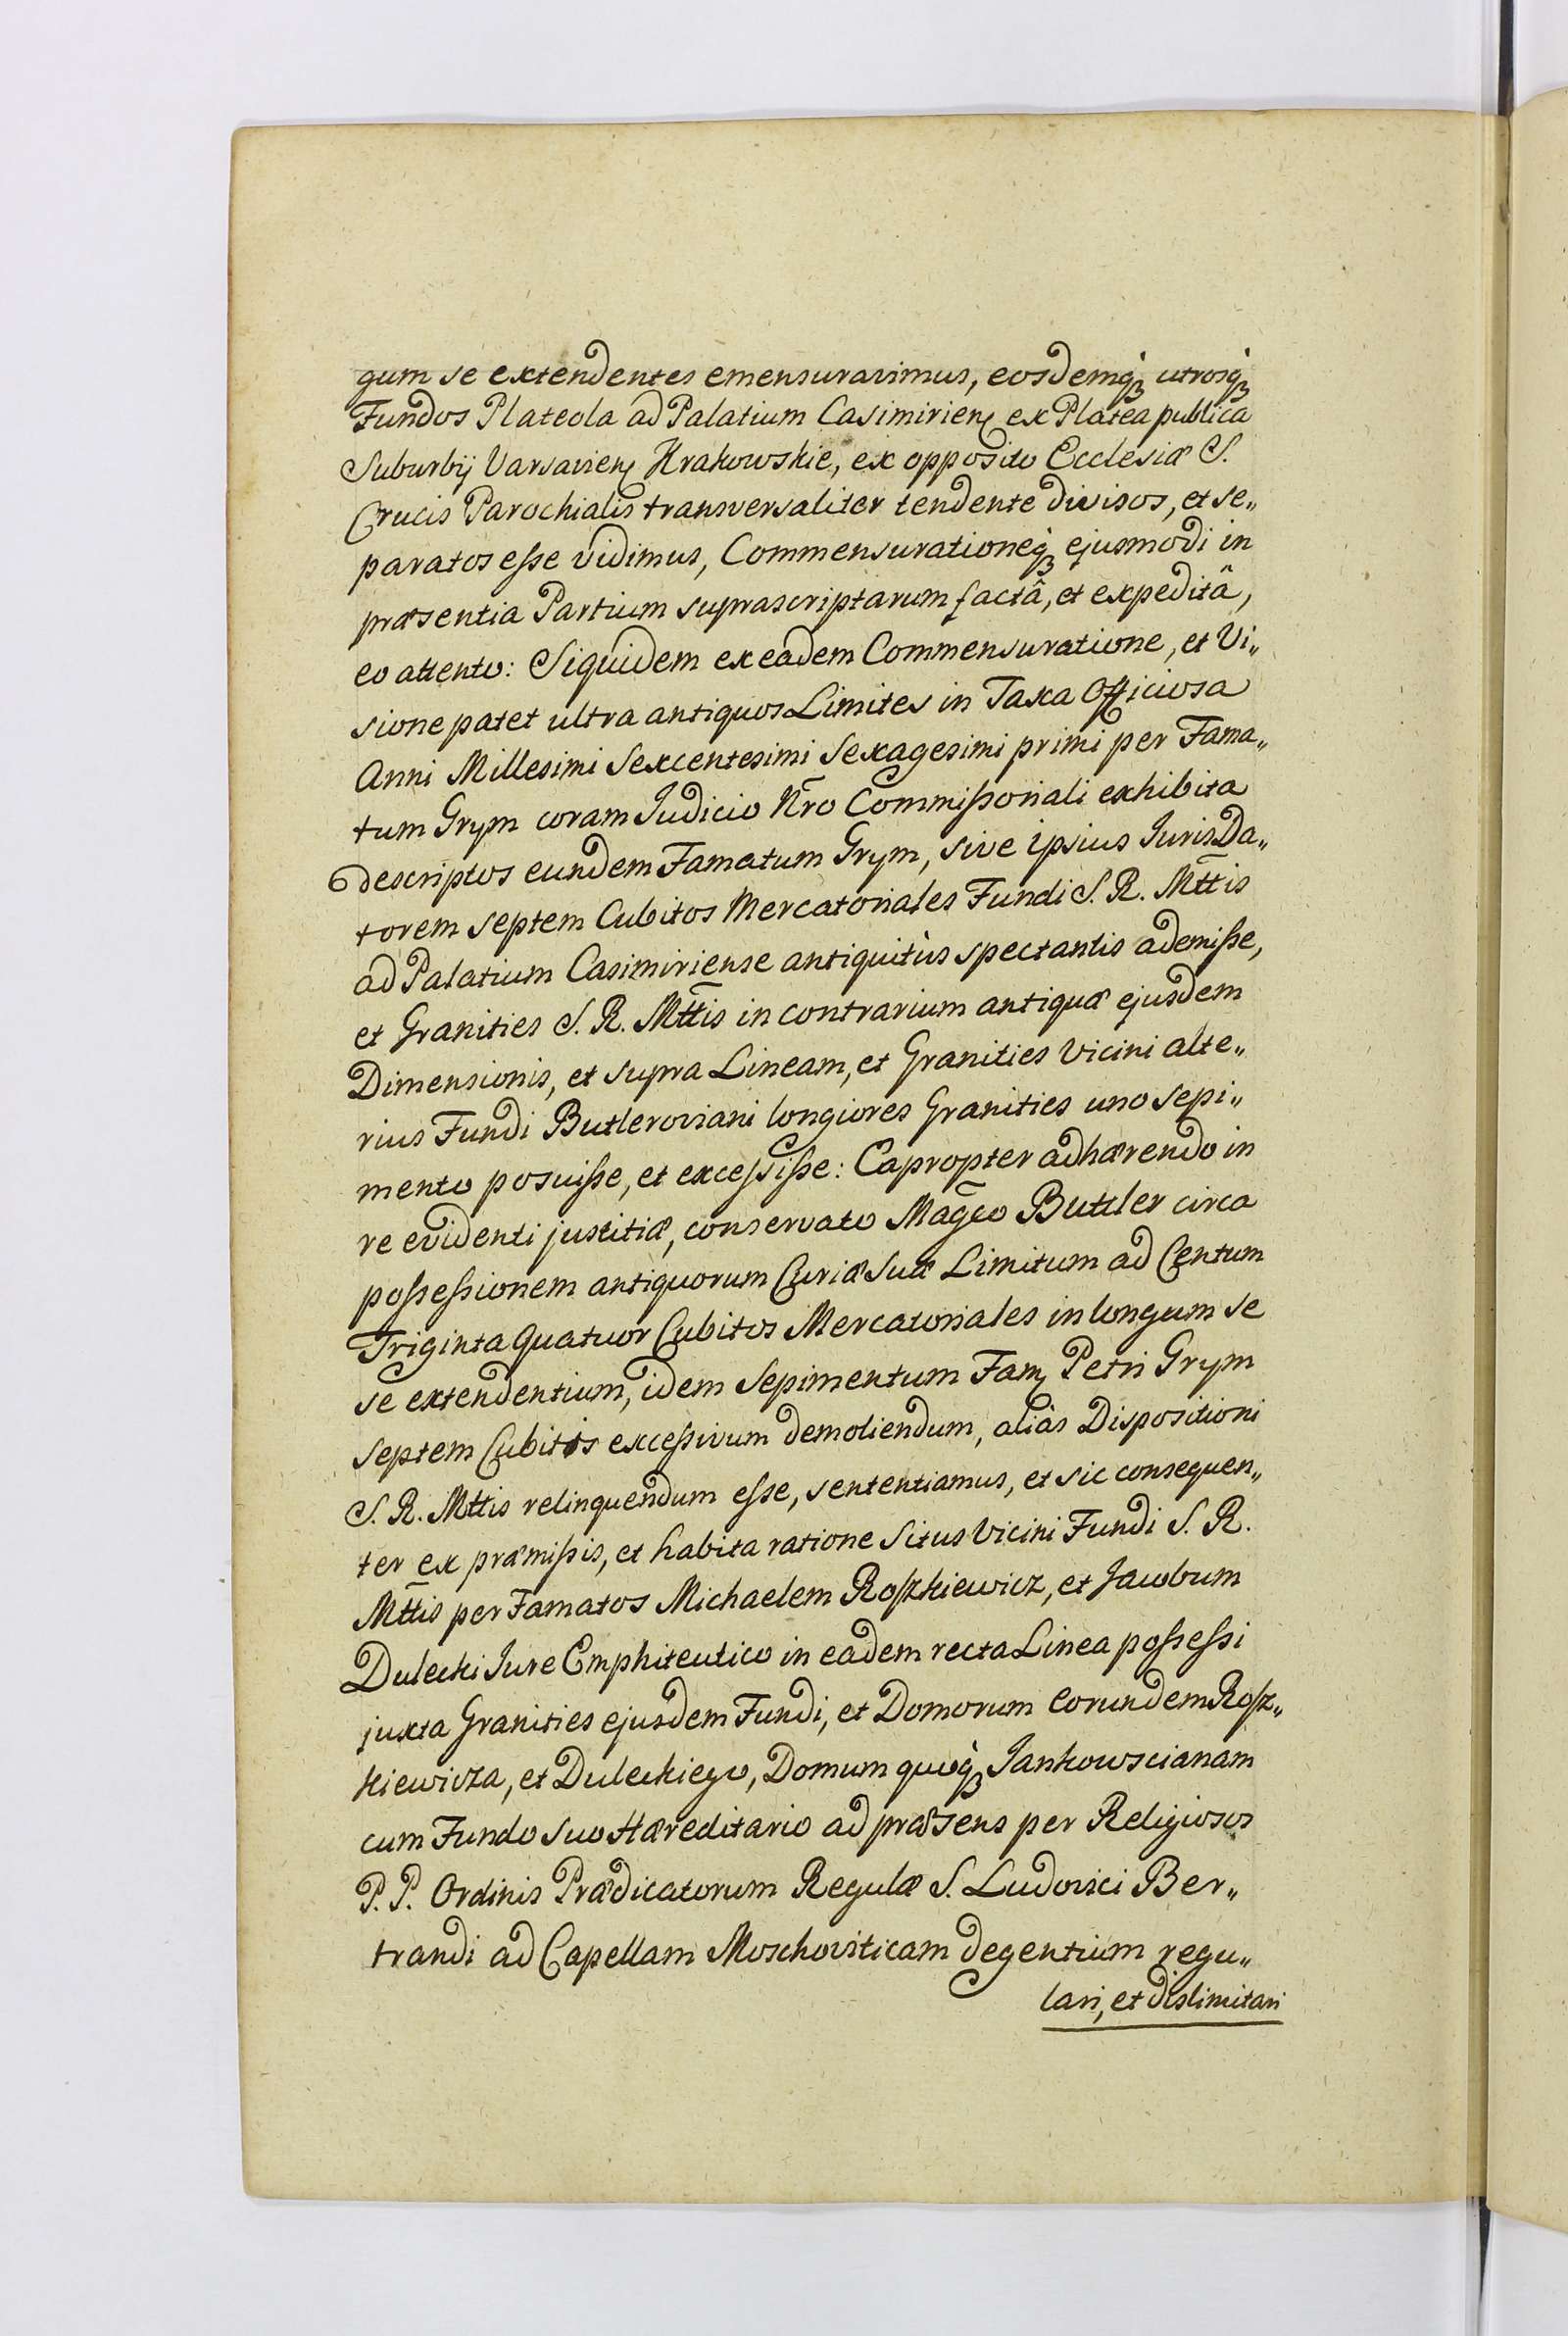 gum se extendentes emensuravimus, eosdemq́ꝫ utrosq́ꝫ
Fundos Plateola ad Palatium Casimirienꝭ ex Platea publica
Suburbij Varsavienꝭ Krakowskie, ex opposito Ecclesiæ S.
Crucis Parochialis transversaliter tendente divisos, et se„
paratos eſse vidimus, Commensurationeq́ꝫ ejusmodi in
præsentia Partium suprascriptarum factâ, et expeditâ,
eo attento: Siquidem ex eadem Commensuratione, et Vi„
sione patet ultra antiquos Limites in Taxa Officiosa
Anni Millesimi Sexcentesimi Sexagesimi primi per Fama„
tum Grym coram Judicio Nr̃o Commiſsoriali exhibita
descriptos eundem Famatum Grym, sive ipsius Juris Da„
torem septem Cubitos Mercatoriales Fundi S. R. Mt̃tis
ad Palatium Casimiriense antiquitùs spectantis ademiſse,
et Granities S. R. Mt̃tis in contrarium antiquæ ejusdem
Dimensionis, et supra Lineam, et Granities Vicini alte„
rius Fundi Butleroviani longiores Granities uno sepi„
mento posuiſse, et exceſsiſse: Eapropter adhærendo in
re evidenti justitiæ, conservato Mag̃co Buttler circa
poſseſsionem antiquorum Curiæ suæ Limitum ad Centum
Triginta Quatuor Cubitos Mercatoriales in longum se
se extendentium, idem Sepimentum Famꝭ Petri Grym
septem Cubitis exceſsivum demoliendum, aliàs Dispositioni
S. R. Mttis relinquendum eſse, sententiamus, et sic consequen„
ter ex præmiſsis, et habita ratione Situs Vicini Fundi S. R.
Mt̃tis per Famatos Michaelem Roſzkiewicz, et Jacobum
Dulecki Jure Emphiteutico in eadem recta Linea poſseſsi
juxta Granities ejusdem Fundi, et Domorum eorundem Roſz„
kiewicza, et Duleckiego, Domum quoq́ꝫ Jankowscianam
cum Fundo suo Hæreditario ad præsens per Religiosos
P. P. Ordinis Prædicatorum Regulæ S. Ludovici Ber„
trandi ad Capellam Moschoviticam degentium regu„
lari, et dislimitari